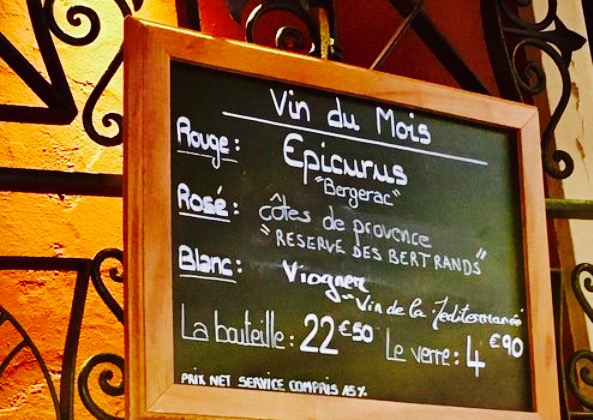 Vin du Mois
Rouge : Epicurus
"Bergerac"
Rosé : côtes de provence
"RESERVE DES BERTRANDS"
Blanc : Viogner
"Vin de la Mediterranée"
La bouteille : 22 €50 Le verre : 4 €90
PRIX NET SERVICE COMPRIS 15%